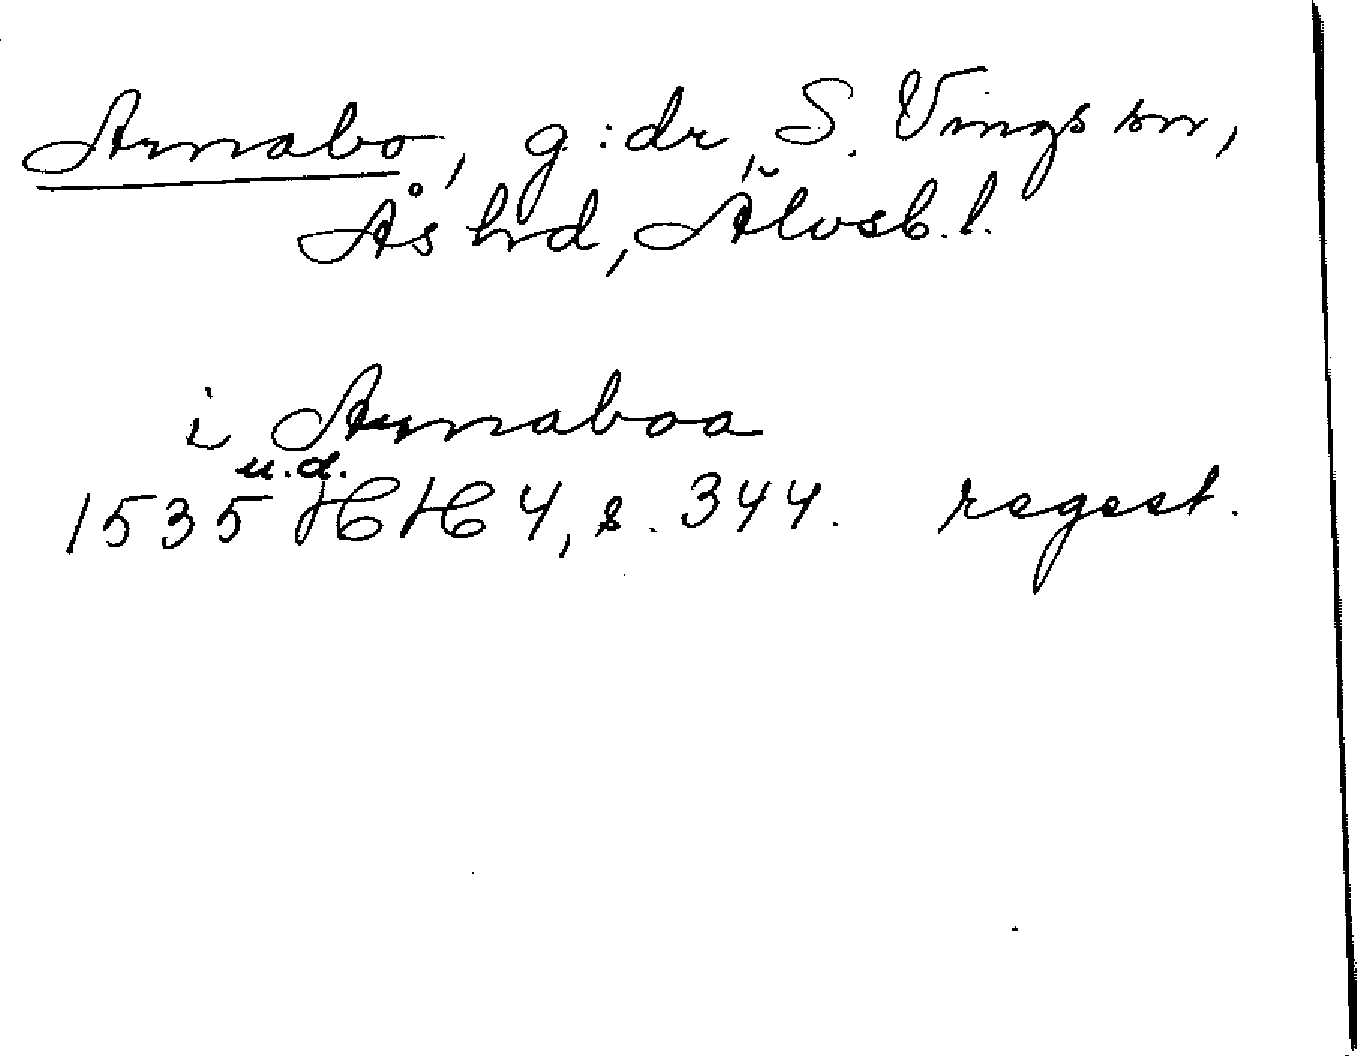 Arnabo, g:dr, S. Vings sn,
Ås hrd, Älvsb. l.
i Arnaboa
u.d.
1535 HH 4, s. 344. regest.